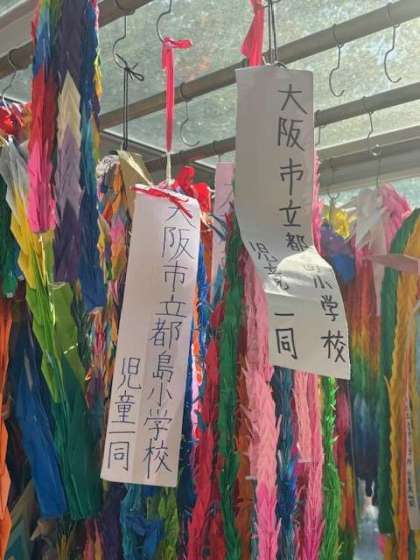 大阪市立都島小学校
児童一同
大阪市立都小学校
児童一同